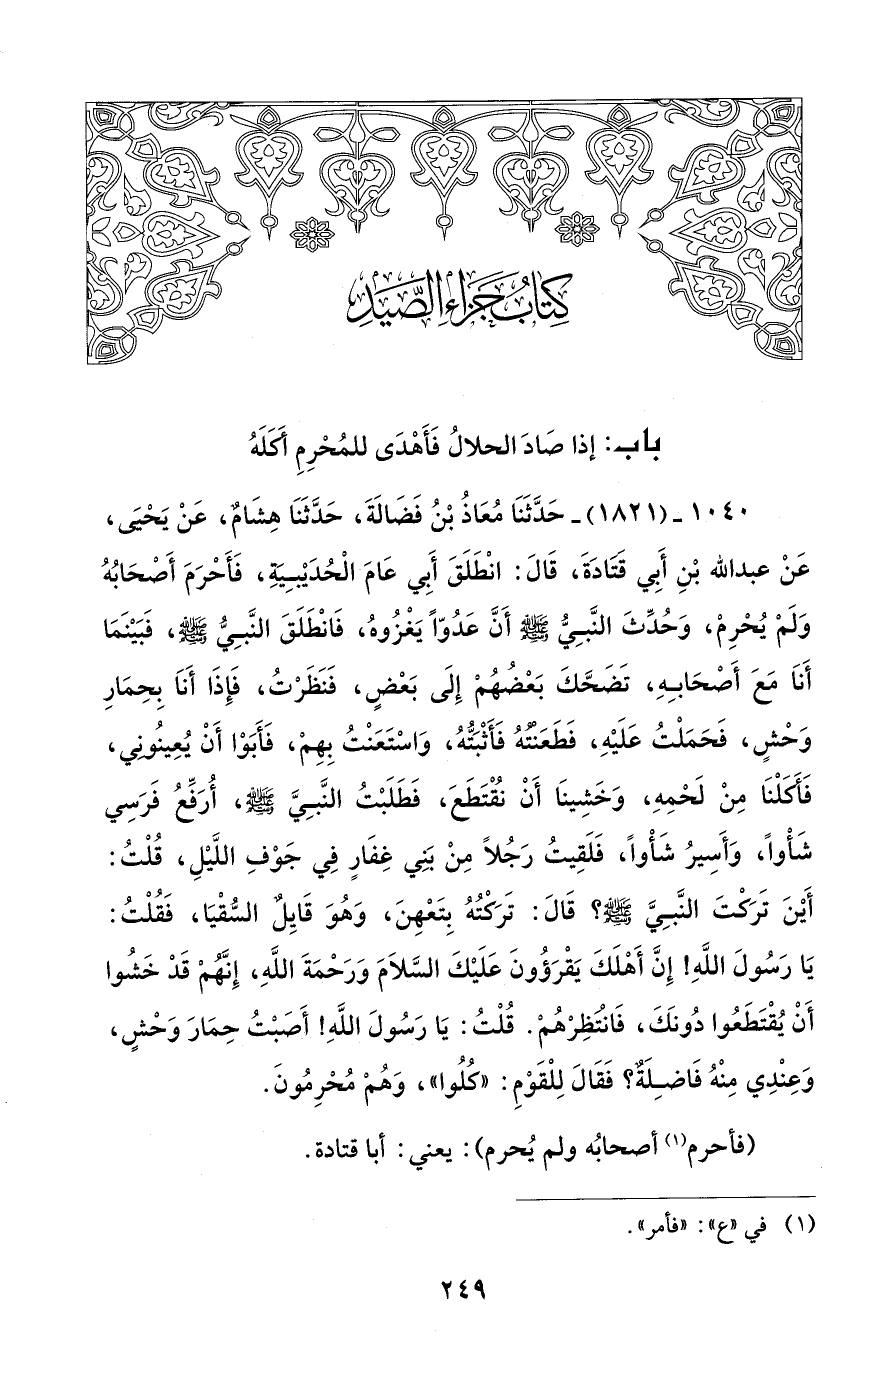 كِتَابُ جَزَاءِ الصَّيْدِ
باب: إذا صَادَ الحلالُ فَأَهْدَى للمُحْرِمِ أَكَلَهُ
١٠٤٠ ـ (١٨٢١) ـ حَدَّثَنَا مُعَاذُ بْنُ فَضَالَةَ، حَدَّثَنَا هِشَامٌ، عَنْ يَحْيَى،
عَنْ عبدالله بْنِ أَبِي قَتَادَةَ، قَالَ: انْطَلَقَ أَبِي عَامَ الْحُدَيْبِيَةِ، فَأَحْرَمَ أَصْحَابُهُ
وَلَمْ يُحْرِمْ، وَحُدِّثَ النَّبِيُّ ﷺ أَنَّ عَدُوّاً يَغْزُوهُ، فَانْطَلَقَ النَّبِيُّ ﷺ، فَبَيْنَمَا
أَنَا مَعَ أَصْحَابِهِ، تَضَحَّكَ بَعْضُهُمْ إِلَى بَعْضٍ، فَنَظَرْتُ، فَإِذَا أَنَا بِحِمَارِ
وَحْشٍ، فَحَمَلْتُ عَلَيْهِ، فَطَعَنْتُهُ فَأَثْبَتُّهُ، وَاسْتَعَنْتُ بِهِمْ، فَأَبَوْا أَنْ يُعِينُونِي،
فَأَكَلْنَا مِنْ لَحْمِهِ، وَخَشِينَا أَنْ نُقْتَطَعَ، فَطَلَبْتُ النَّبِيَّ ﷺ، أُرَفِّعُ فَرَسِي
شَأْواً، وَأَسِيرُ شَأْواً، فَلَقِيتُ رَجُلاً مِنْ بَنِي غِفَارٍ فِي جَوْفِ اللَّيْلِ، قُلْتُ:
أَيْنَ تَرَكْتَ النَّبِيَّ ﷺ؟ قَالَ: تَرَكْتُهُ بِتَعْهِنَ، وَهُوَ قَايِلٌ السُّقْيَا، فَقُلْتُ:
يَا رَسُولَ اللَّهِ! إِنَّ أَهْلَكَ يَقْرَؤُونَ عَلَيْكَ السَّلاَمَ وَرَحْمَةَ اللَّهِ، إِنَّهُمْ قَدْ خَشُوا
أَنْ يُقْتَطَعُوا دُونَكَ، فَانْتَظِرْهُمْ. قُلْتُ: يَا رَسُولَ اللَّهِ! أَصَبْتُ حِمَارَ وَحْشٍ،
وَعِنْدِي مِنْهُ فَاضِلَةٌ؟ فَقَالَ لِلْقَوْمِ: «كُلُوا»، وَهُمْ مُحْرِمُونَ.
(فأحرم(١) أصحابُه ولم يُحرم): يعني: أبا قتادة.
(١) في «ع»: «فأمر».
٢٤٩